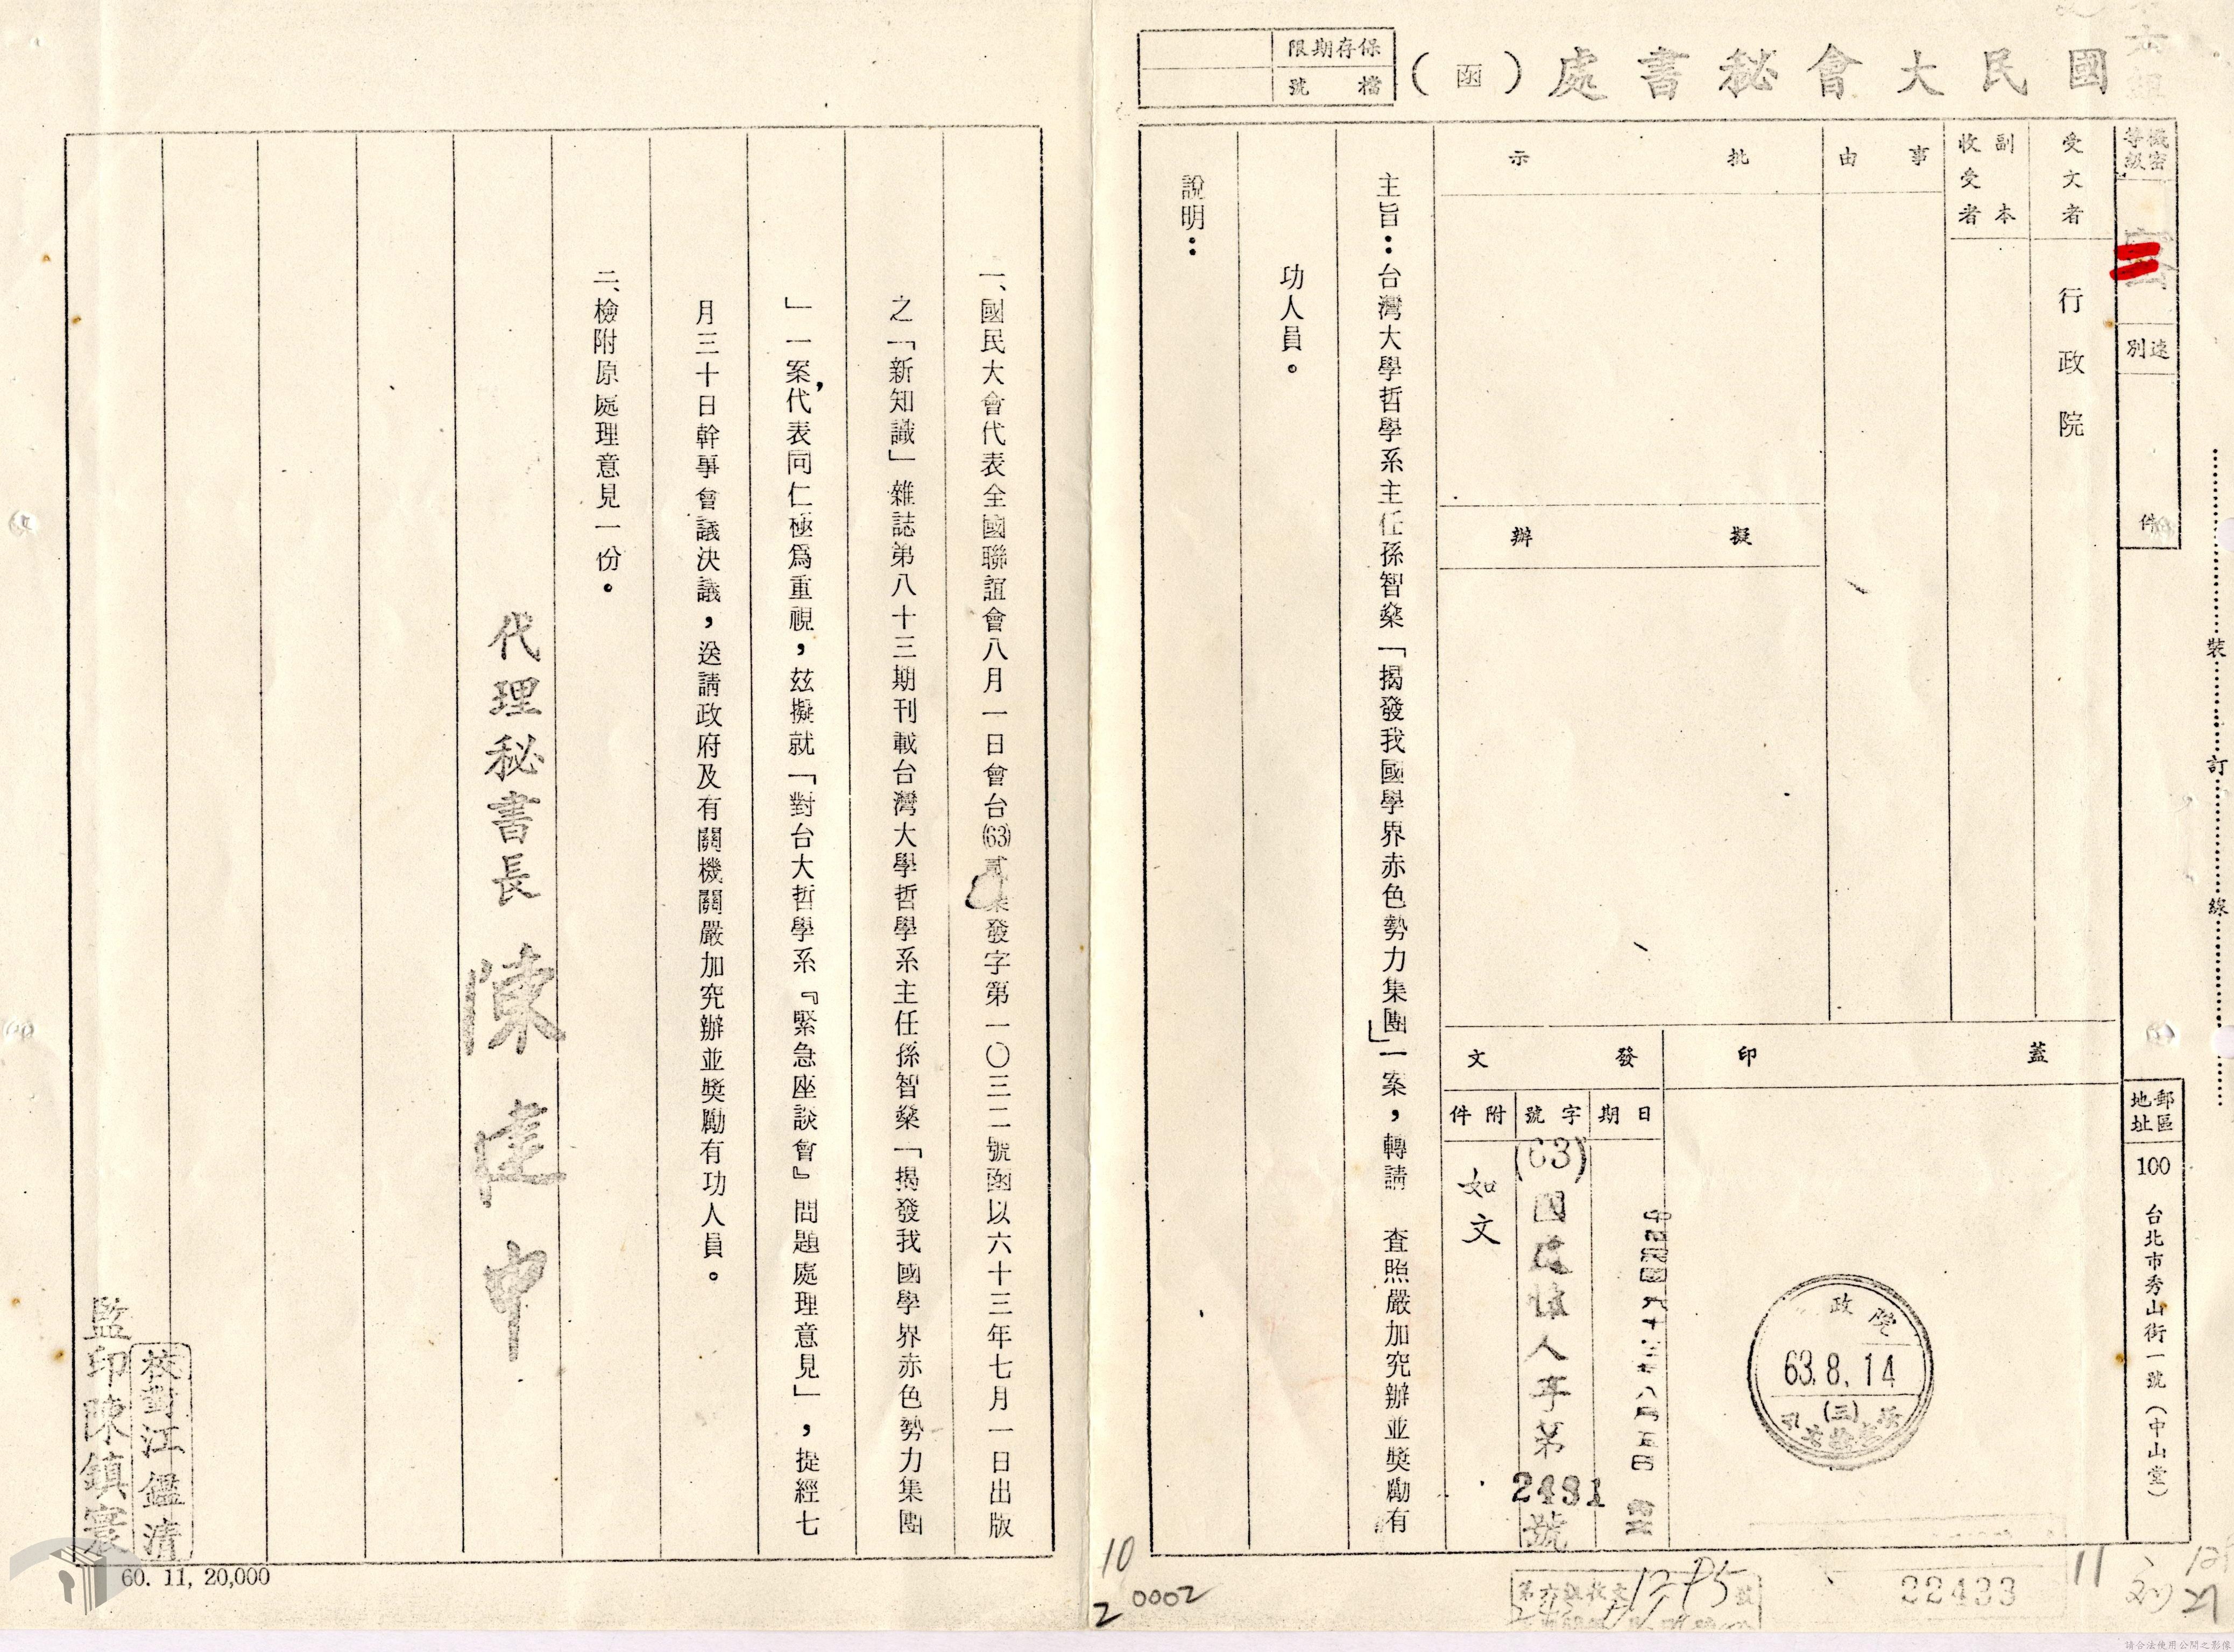 國民大會秘書處（函）
保存期限
檔號
機密等級
速別
件
受文者
行政院
副本收受者
事由
批示
擬辦
蓋印
發文
日期
字號
附件
中華民國六十三年八月五日
(63)國
人字第2431號
如文
政院
63.8.14
(三)
郵區地址
100
台北市秀山街一號（中山堂）
裝
訂
線
主旨：台灣大學哲學系主任孫智燊「揭發我國學界赤色勢力集團」一案，轉請　查照嚴加究辦並獎勵有
功人員。
說明：
一、國民大會代表全國聯誼會八月一日會台(63)貳發字第一〇三二號函以六十三年七月一日出版
之「新知識」雜誌第八十三期刊載台灣大學哲學系主任孫智燊「揭發我國學界赤色勢力集團
」一案，代表同仁極爲重視，玆擬就「對台大哲學系『緊急座談會』問題處理意見」，提經七
月三十日幹事會議決議，送請政府及有關機關嚴加究辦並獎勵有功人員。
二、檢附原處理意見一份。
代理秘書長　陳建中
校對江鑑清
監印陳鎮寰
60. 11, 20,000
10
2
0002
第六組收文
號
22433
11
請合法使用公開之影像